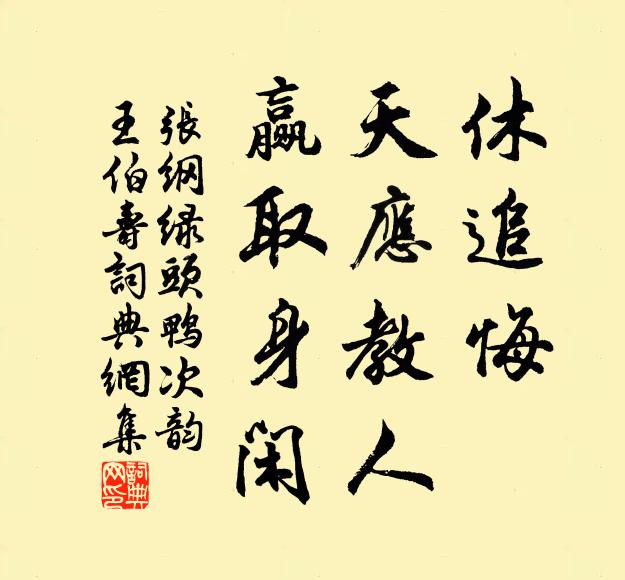 休追悔
天應教人
贏取身閑
張綱綠頭鴨次韵
王伯壽詞典網集
詞典
网印